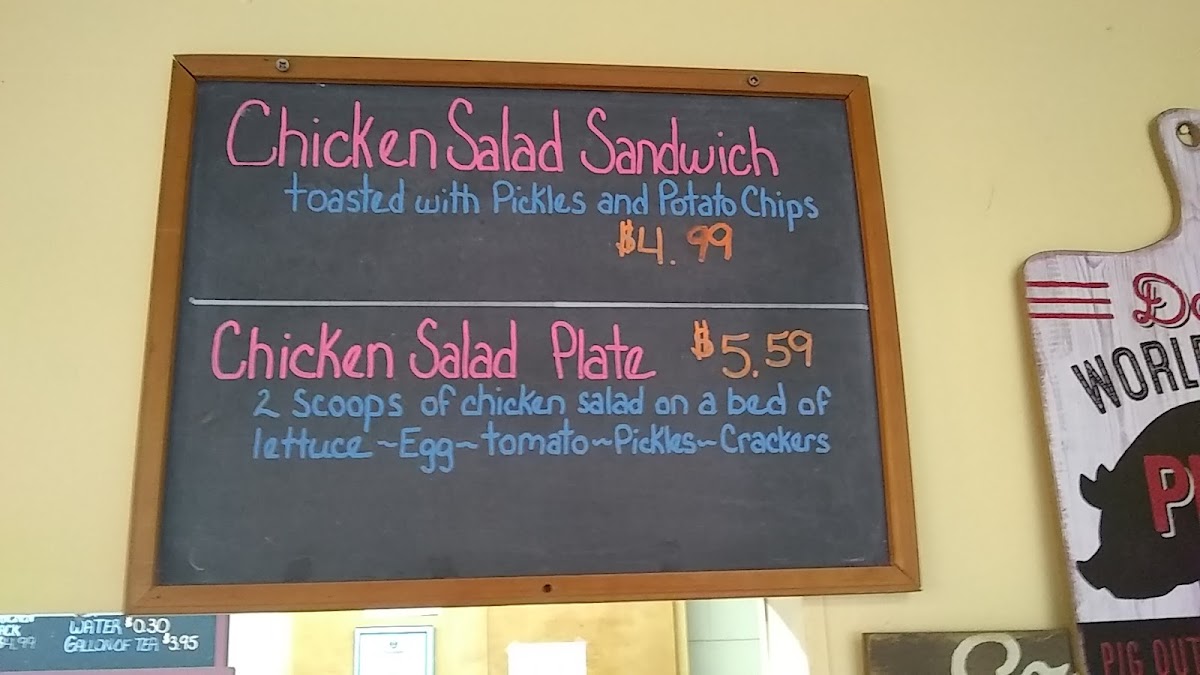 Chicken Salad Sandwich
toasted with Pickles and Potato Chips
$4.99
Chicken Salad Plate $5.59
2 Scoops of chicken salad on a bed of
lettuce ~ Egg ~ tomato ~ Pickles ~ Crackers
WATER $0.30
GALLON OF TEA $3.95
$4.99
PIG OUT